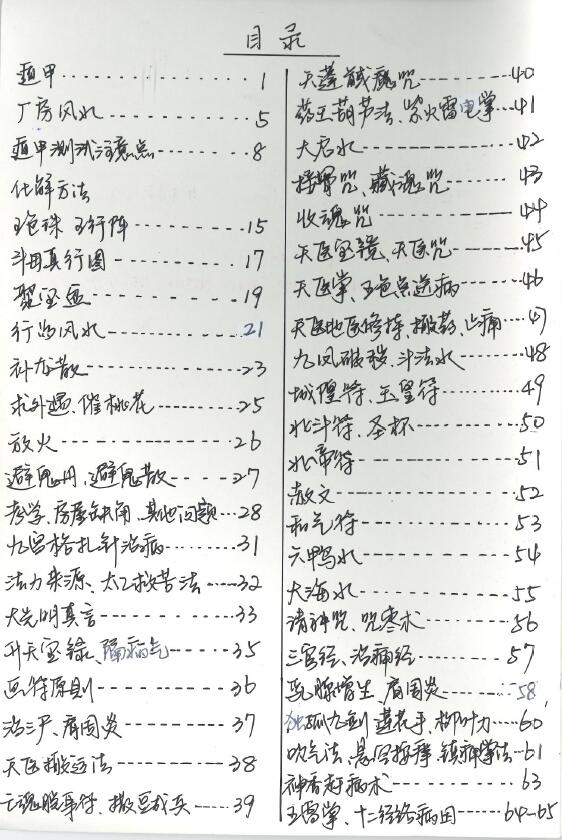 目录
遁甲 1
厂房风水 5
遁甲测试注意点 8
化解方法
五色珠 五行阵 15
斗母真行图 17
聚宝盆 19
行为风水 21
补龙散 23
求外遇、催桃花 25
放火 26
避鬼丹、避鬼散 27
考学、房屋缺角、其他问题 28
九宫格扎针治病 31
法力来源、太乙救苦法 32
大光明真言 33
升天宝录、隔病气 35
画符原则 36
治三尸、肩周炎 37
天医搬运法 38
亡魂脱身符、撒豆成兵 39
天蓬馘魔咒 40
药王葫芦法、紫火雷电掌 41
大君水 42
接骨咒、藏魂咒 43
收魂咒 44
天医宝镜、天医咒 45
天医掌、五色点送病 46
天医地医修持、撒药、止痛 47
九凤破秽、斗法水 48
城隍符、玉皇符 49
北斗符、圣杯 50
北帝符 51
赦文 52
和气符 53
六鸭水 54
大海水 55
请神咒、咒枣术 56
三官经、治病经 57
乳腺增生、肩周炎 58
独孤九剑 莲花手、柳叶刀 60
吹气法、悬空按摩、镇神掌法 61
神香赶病术 63
五雷掌、十二经络病因 64-65